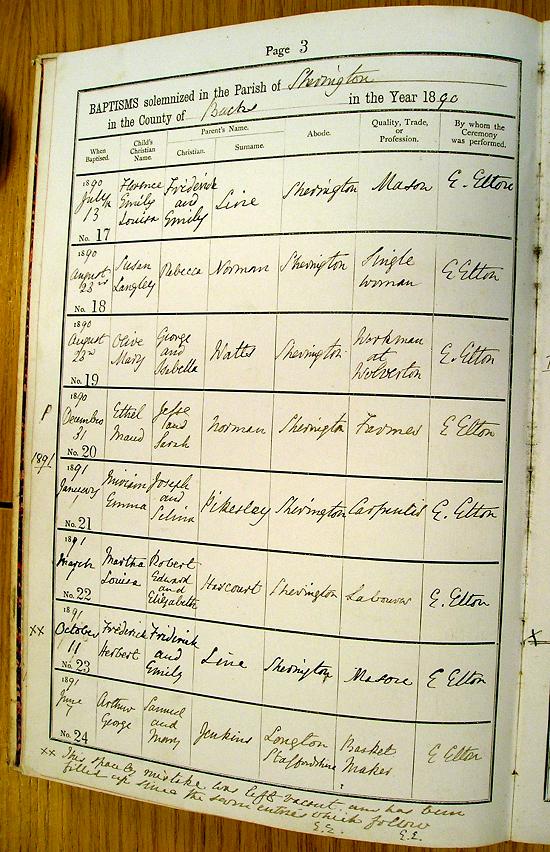 Page 3
BAPTISMS solemnized in the Parish of Sherington
in the County of Bucks in the Year 1890
When Baptised. Child's Christian Name. Parent's Name. Christian. Surname. Abode. Quality, Trade, or Profession. By whom the Ceremony was performed.
1890 July 13 No. 17 Florence Emily Louisa Frederick and Emily Line Sherington Mason E. Elton
1890 August 23rd No. 18 Susan Langley Rebecca Norman Sherington Single Woman E Elton
1890 August No. 19 Olive Mary George and Isabella Watts Sherington Workman at Wolverton E. Elton
P
1890 December 31 No. 20 Ethel Maud Jesse and Sarah Norman Sherington Farmer E Elton
1891
1891 January No. 21 Miriam Emma Joseph and Selina Pikesley Sherington Carpenter E. Elton
1891 March No. 22 Martha Louisa Robert Edward and Elizabeth Harcourt Sherington Labourer E. Elton
xx
1891 October 11 No. 23 Frederick Herbert Frederick and Emily Line Sherington Mason E Elton
1891 June 7 No. 24 Arthur George Samuel and Mary Jenkins Longton Staffordshire Basket Maker E Elton
xx This space by mistake was left vacant and has been
filled up since the seven entries which follow
E.E. E.E.
x